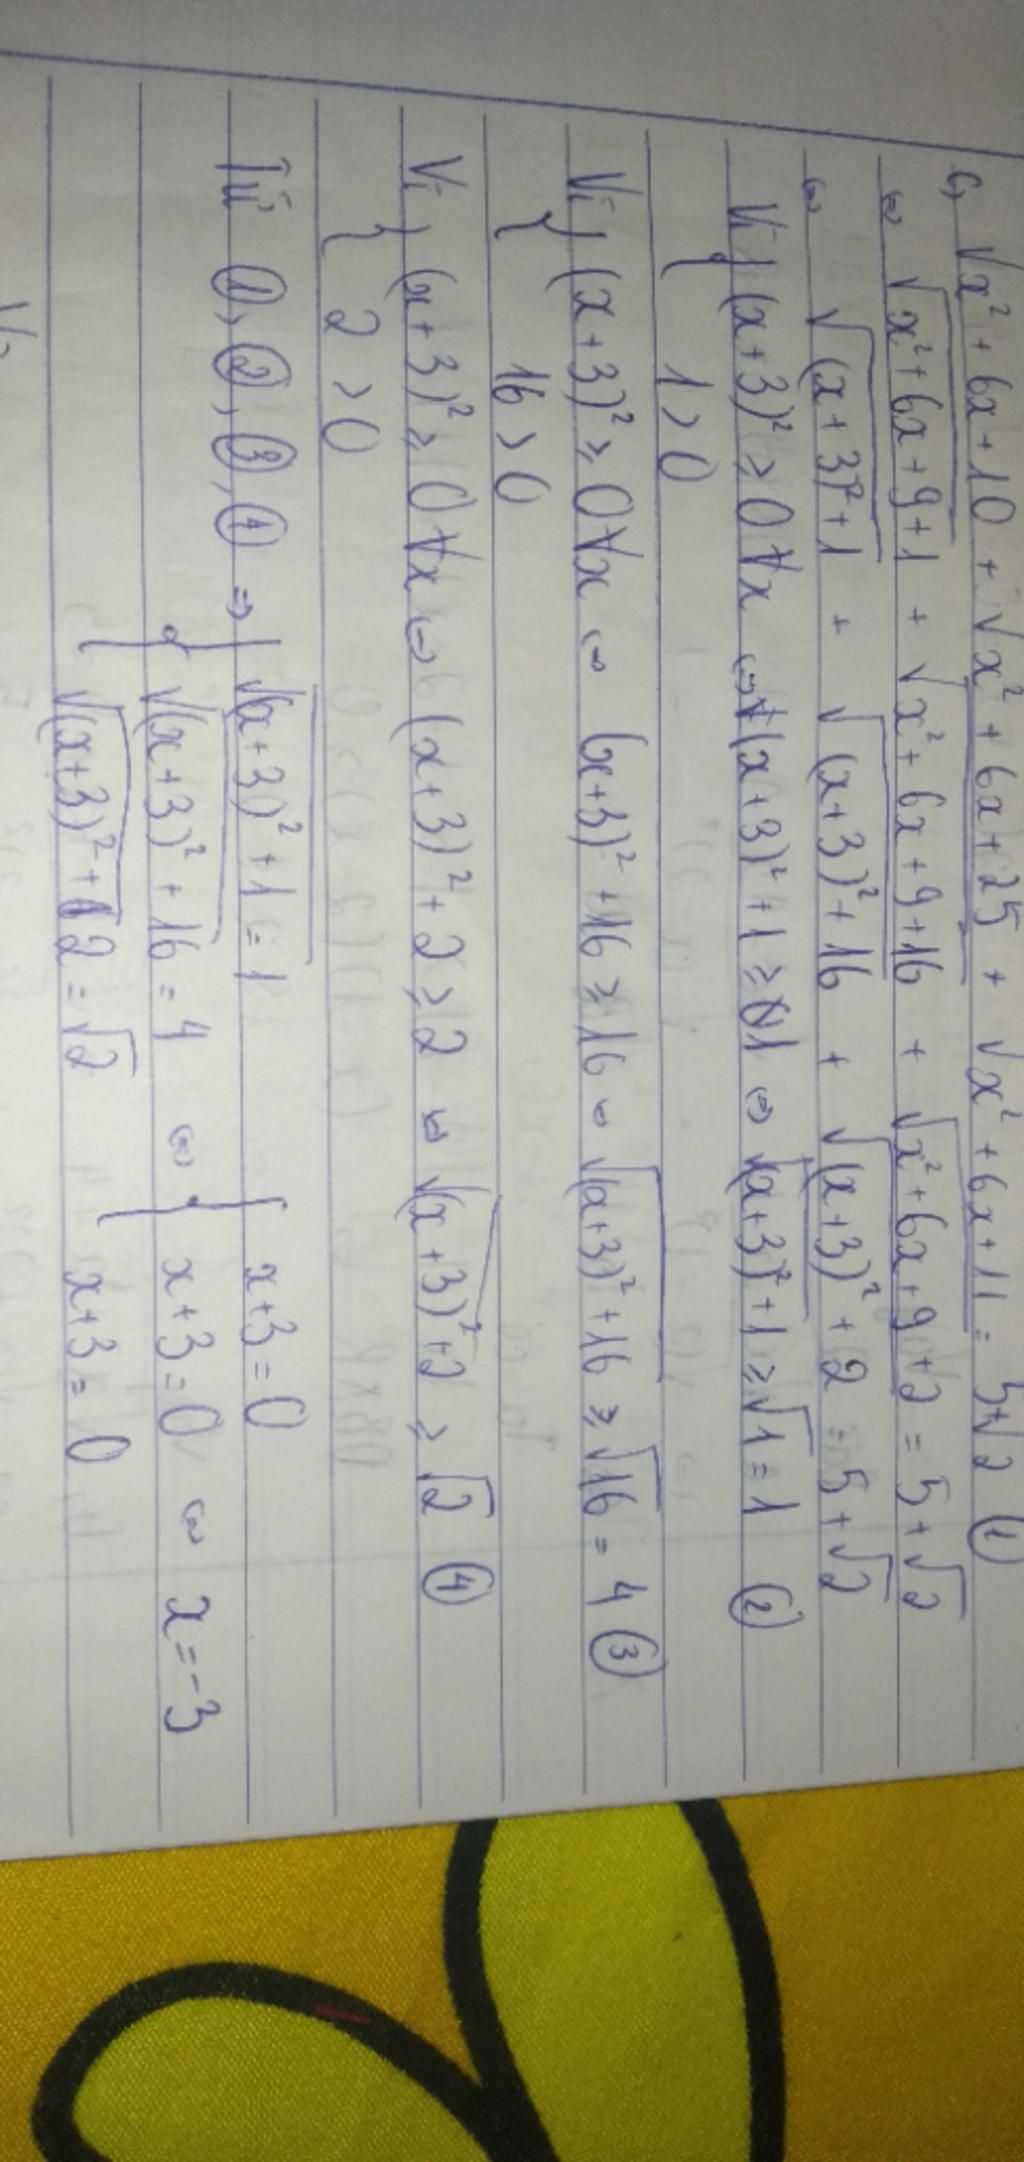 c, √x² + 6x + 10 + √x² + 6x + 25 + √x² + 6x + 11 = 5+√2 ①
⇔ √x² + 6x + 9 + 1 + √x² + 6x + 9 + 16 + √x² + 6x + 9 + 2 = 5 + √2
⇔ √(x + 3)² + 1 + √(x + 3)² + 16 + √(x + 3)² + 2 = 5 + √2
Vì { (x + 3)² ≥ 0 ∀x ⇔ (x + 3)² + 1 ≥ 1 ⇔ √(x + 3)² + 1 ≥ √1 = 1 ②
1 > 0
Vì { (x + 3)² ≥ 0 ∀x ⇔ (x + 3)² + 16 ≥ 16 ⇔ √(x + 3)² + 16 ≥ √16 = 4 ③
16 > 0
Vì { (x + 3)² ≥ 0 ∀x ⇔ (x + 3)² + 2 ≥ 2 ⇔ √(x + 3)² + 2 ≥ √2 ④
2 > 0
Từ ①, ②, ③, ④ ⇒ { √(x + 3)² + 1 = 1 { x + 3 = 0
√(x + 3)² + 16 = 4 ⇔ x + 3 = 0 ⇔ x = -3
√(x + 3)² + 2 = √2 x + 3 = 0